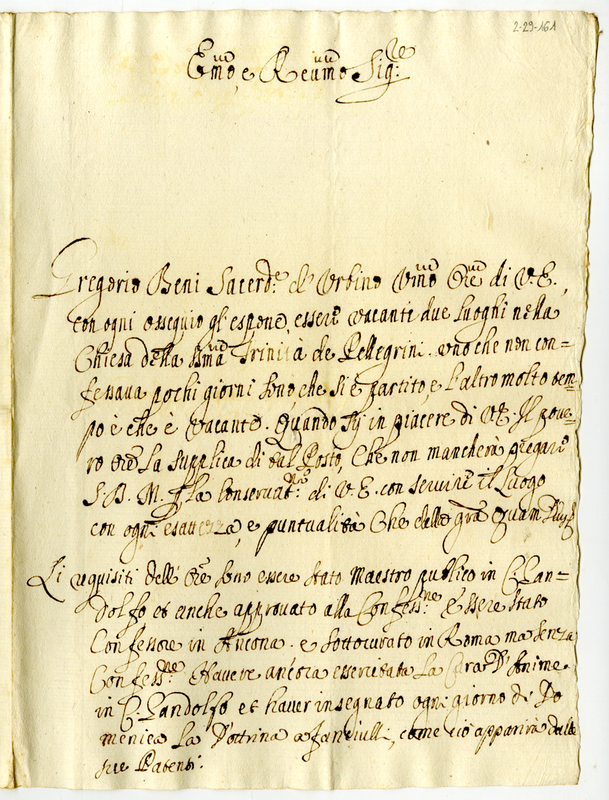 2-29-161
Em̃o, e Reum̃o Sig.re
Gregorio Beni Sacerd.e d' Urbino Um̃o Ore di V. E.,
con ogni ossequio gl' espone, essere vacanti due luoghi nella
Chiesa della Sm̃a Trinità de Pellegrini. uno che non con=
fessava pochi giorni sono, che si è partito, e l'altro molto tem=
po è che è vacante. Quando sij in piacere di V. E. Il pove=
ro Ore La supplica di tal Posto, Che non mancherà pregare
S. D. M. p la conservat.ne di V. E. con servire il Luogo
con ogni esattezza, e puntualità Che della gra Quam Deus
Li requisiti dell' Ore sono essere stato Maestro publico in C. Gan=
dolfo et anche approvato alla Confess.ne Essere stato
Confessore in Ancona. e sottocurato in Roma ma senza
Confess.ne Havere ancora essercitata La Cura d'Anime
in C. Gandolfo et haver insegnato ogni giorno di Do
menica La Dottrina a fanciulli, come ciò apparirà dalle
sue Patenti.